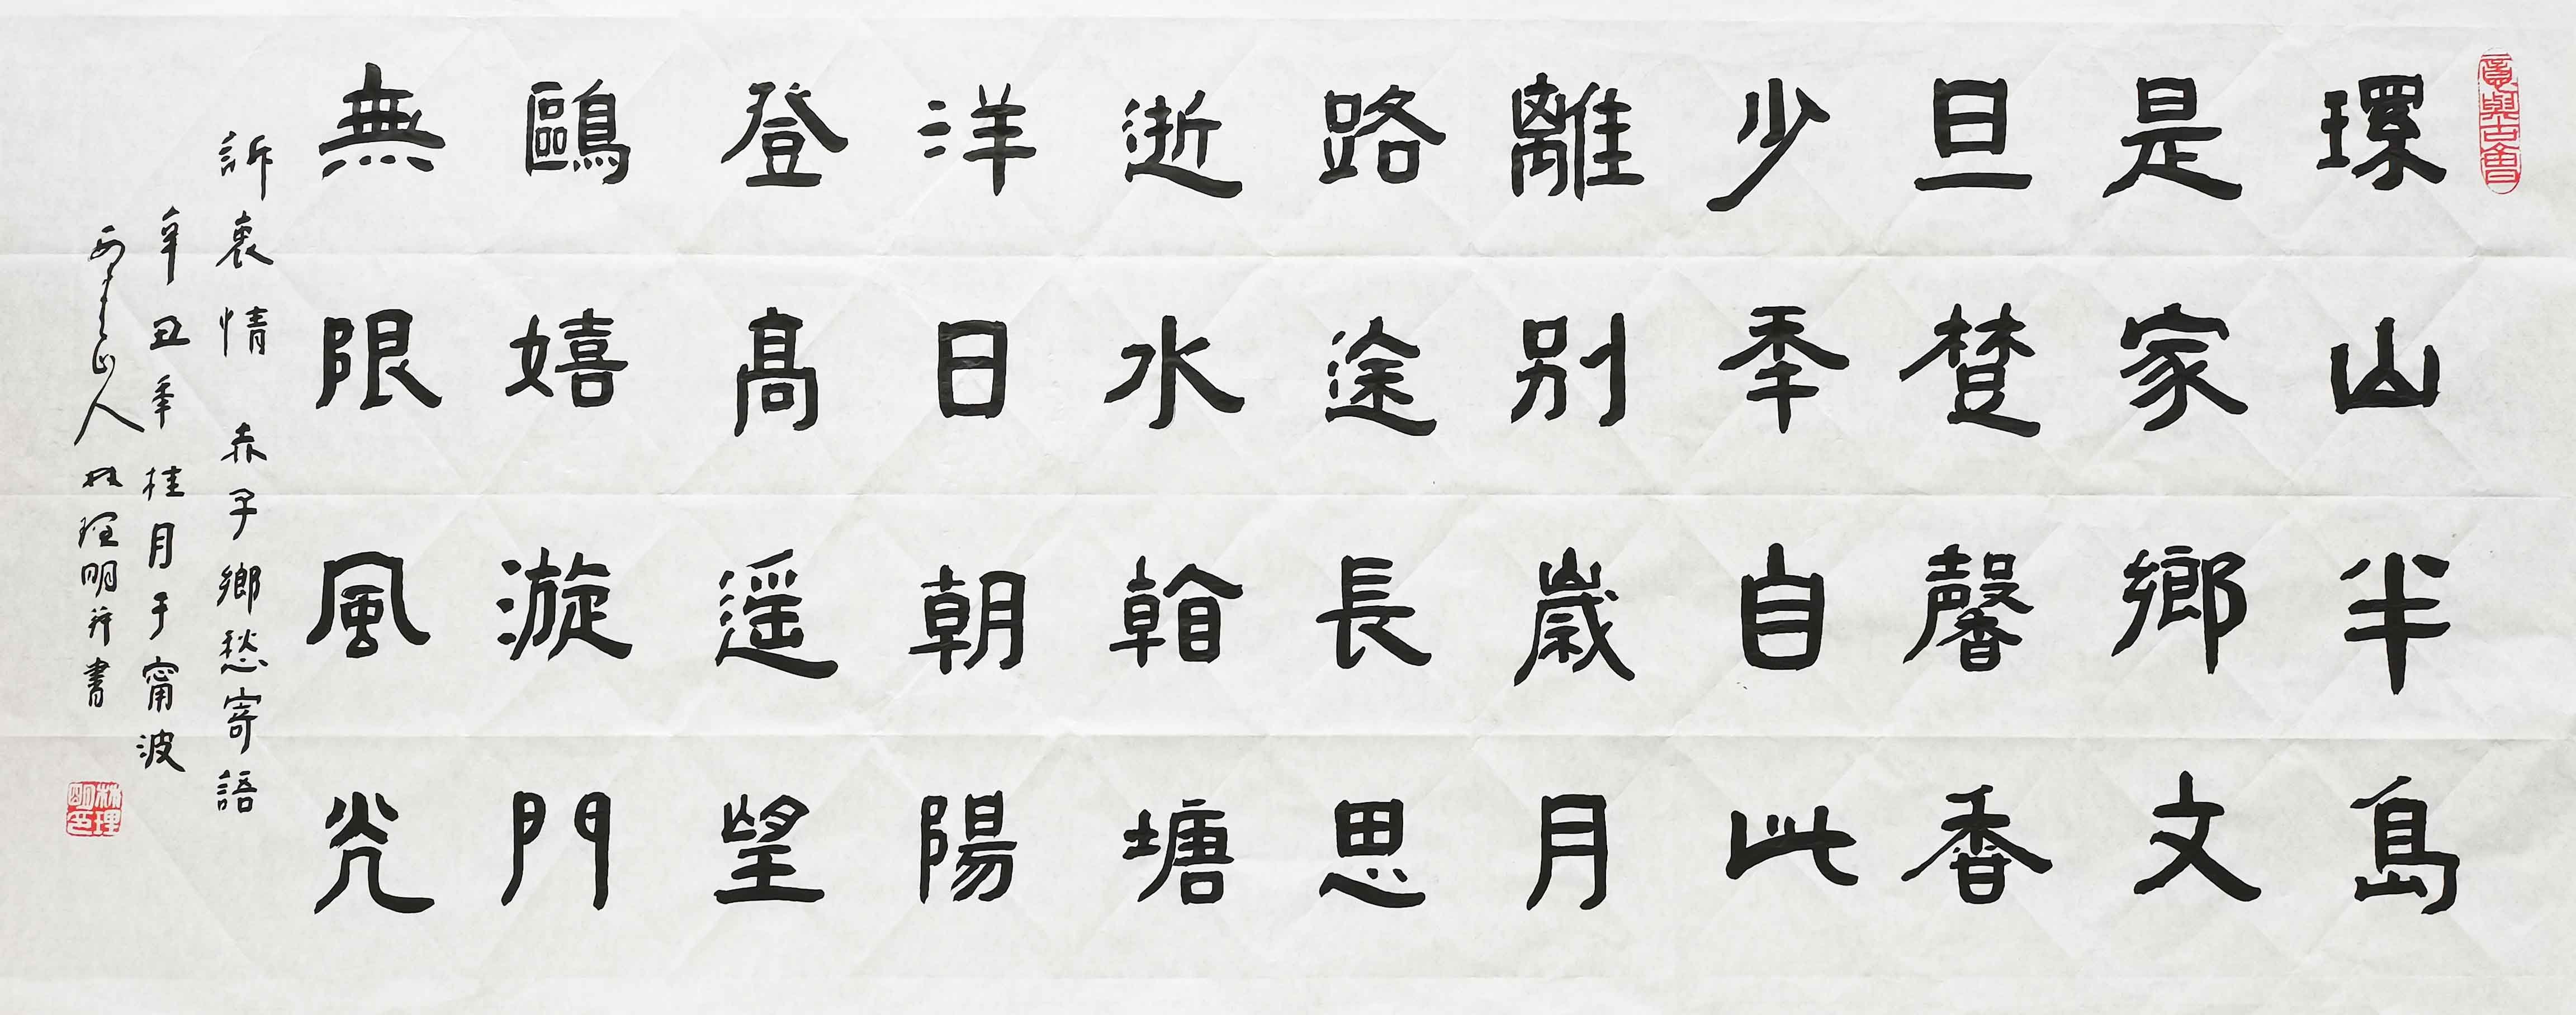 意與古會
環山半島
是家鄉文
旦楚馨香
少秊自此
離別歲月
路途長思
逝水翰塘
洋日朝陽
登高遥望
鷗嬉漩門
無限風光
訴衷情 赤子鄉愁寄語
辛丑年桂月于甯波
山人 林理明并書
林理明印